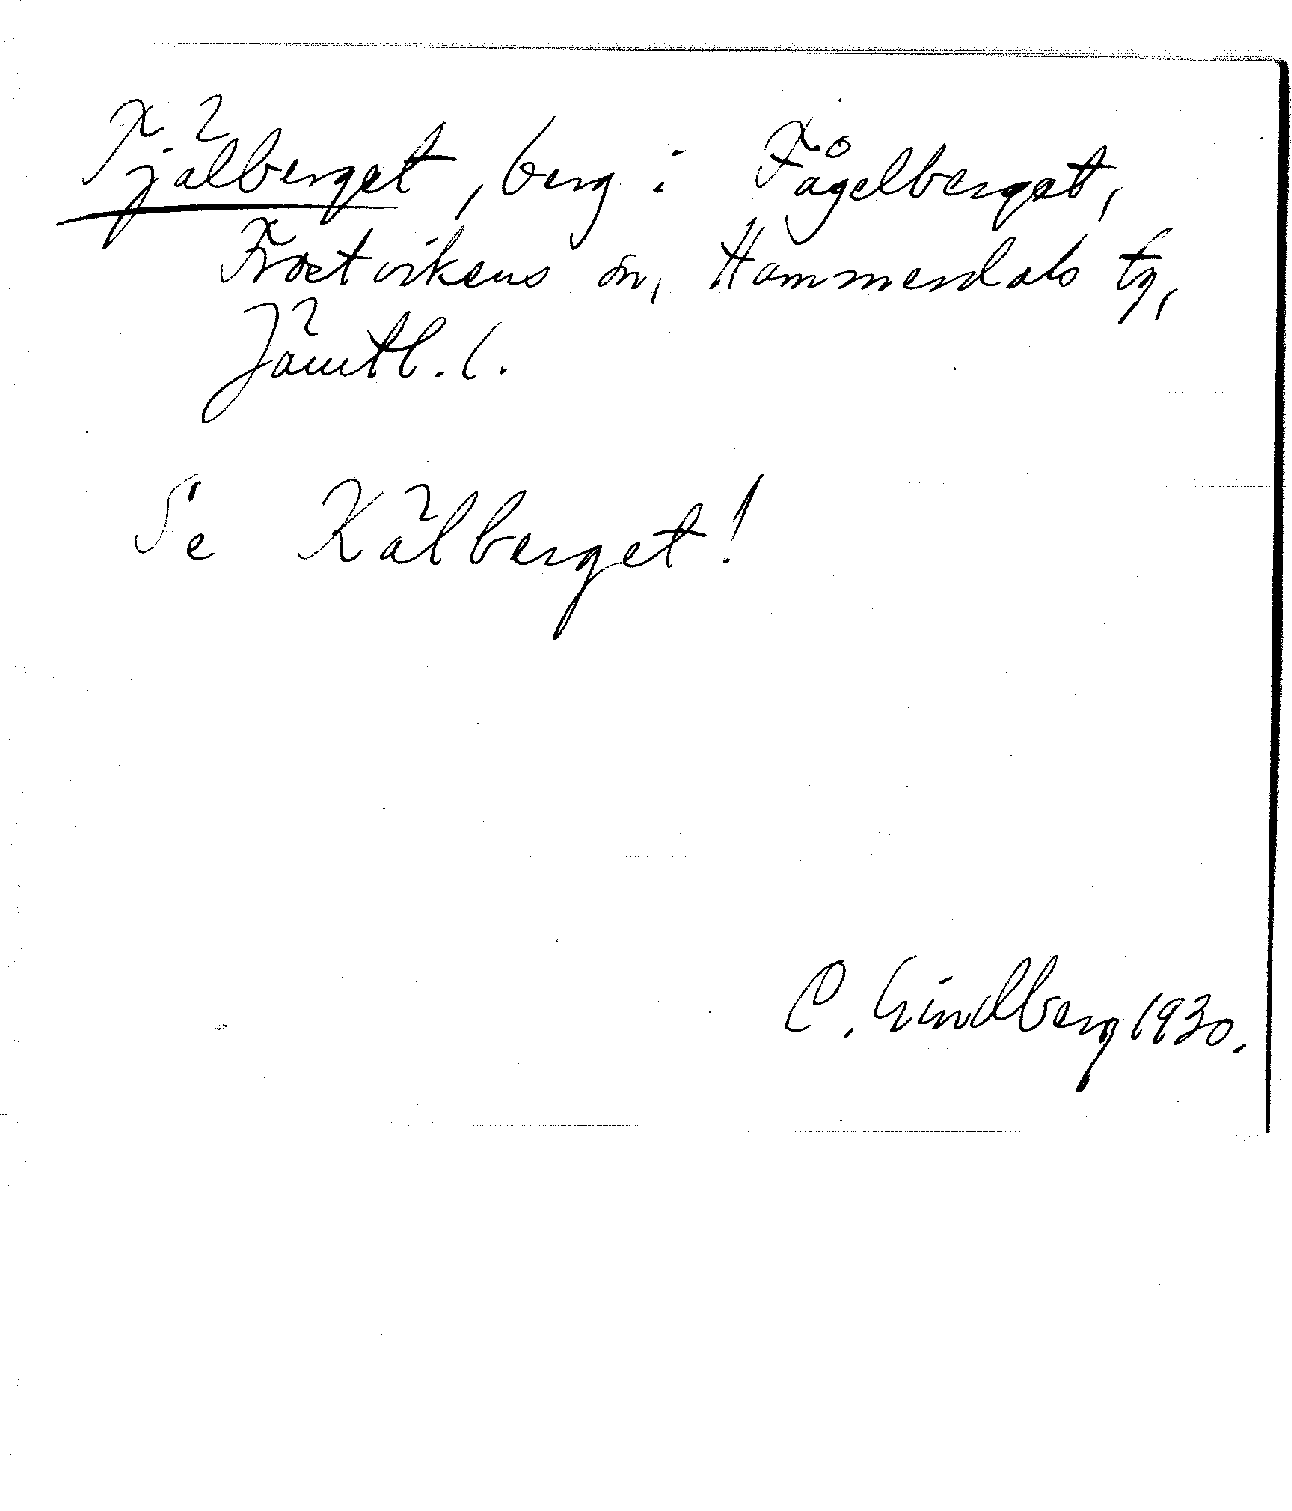 Tjälberget, berg i Fågelberget,
Frostvikens sn, Hammerdals tg,
Jämtl. l.
Se Kälberget!
C. Lindberg 1930.